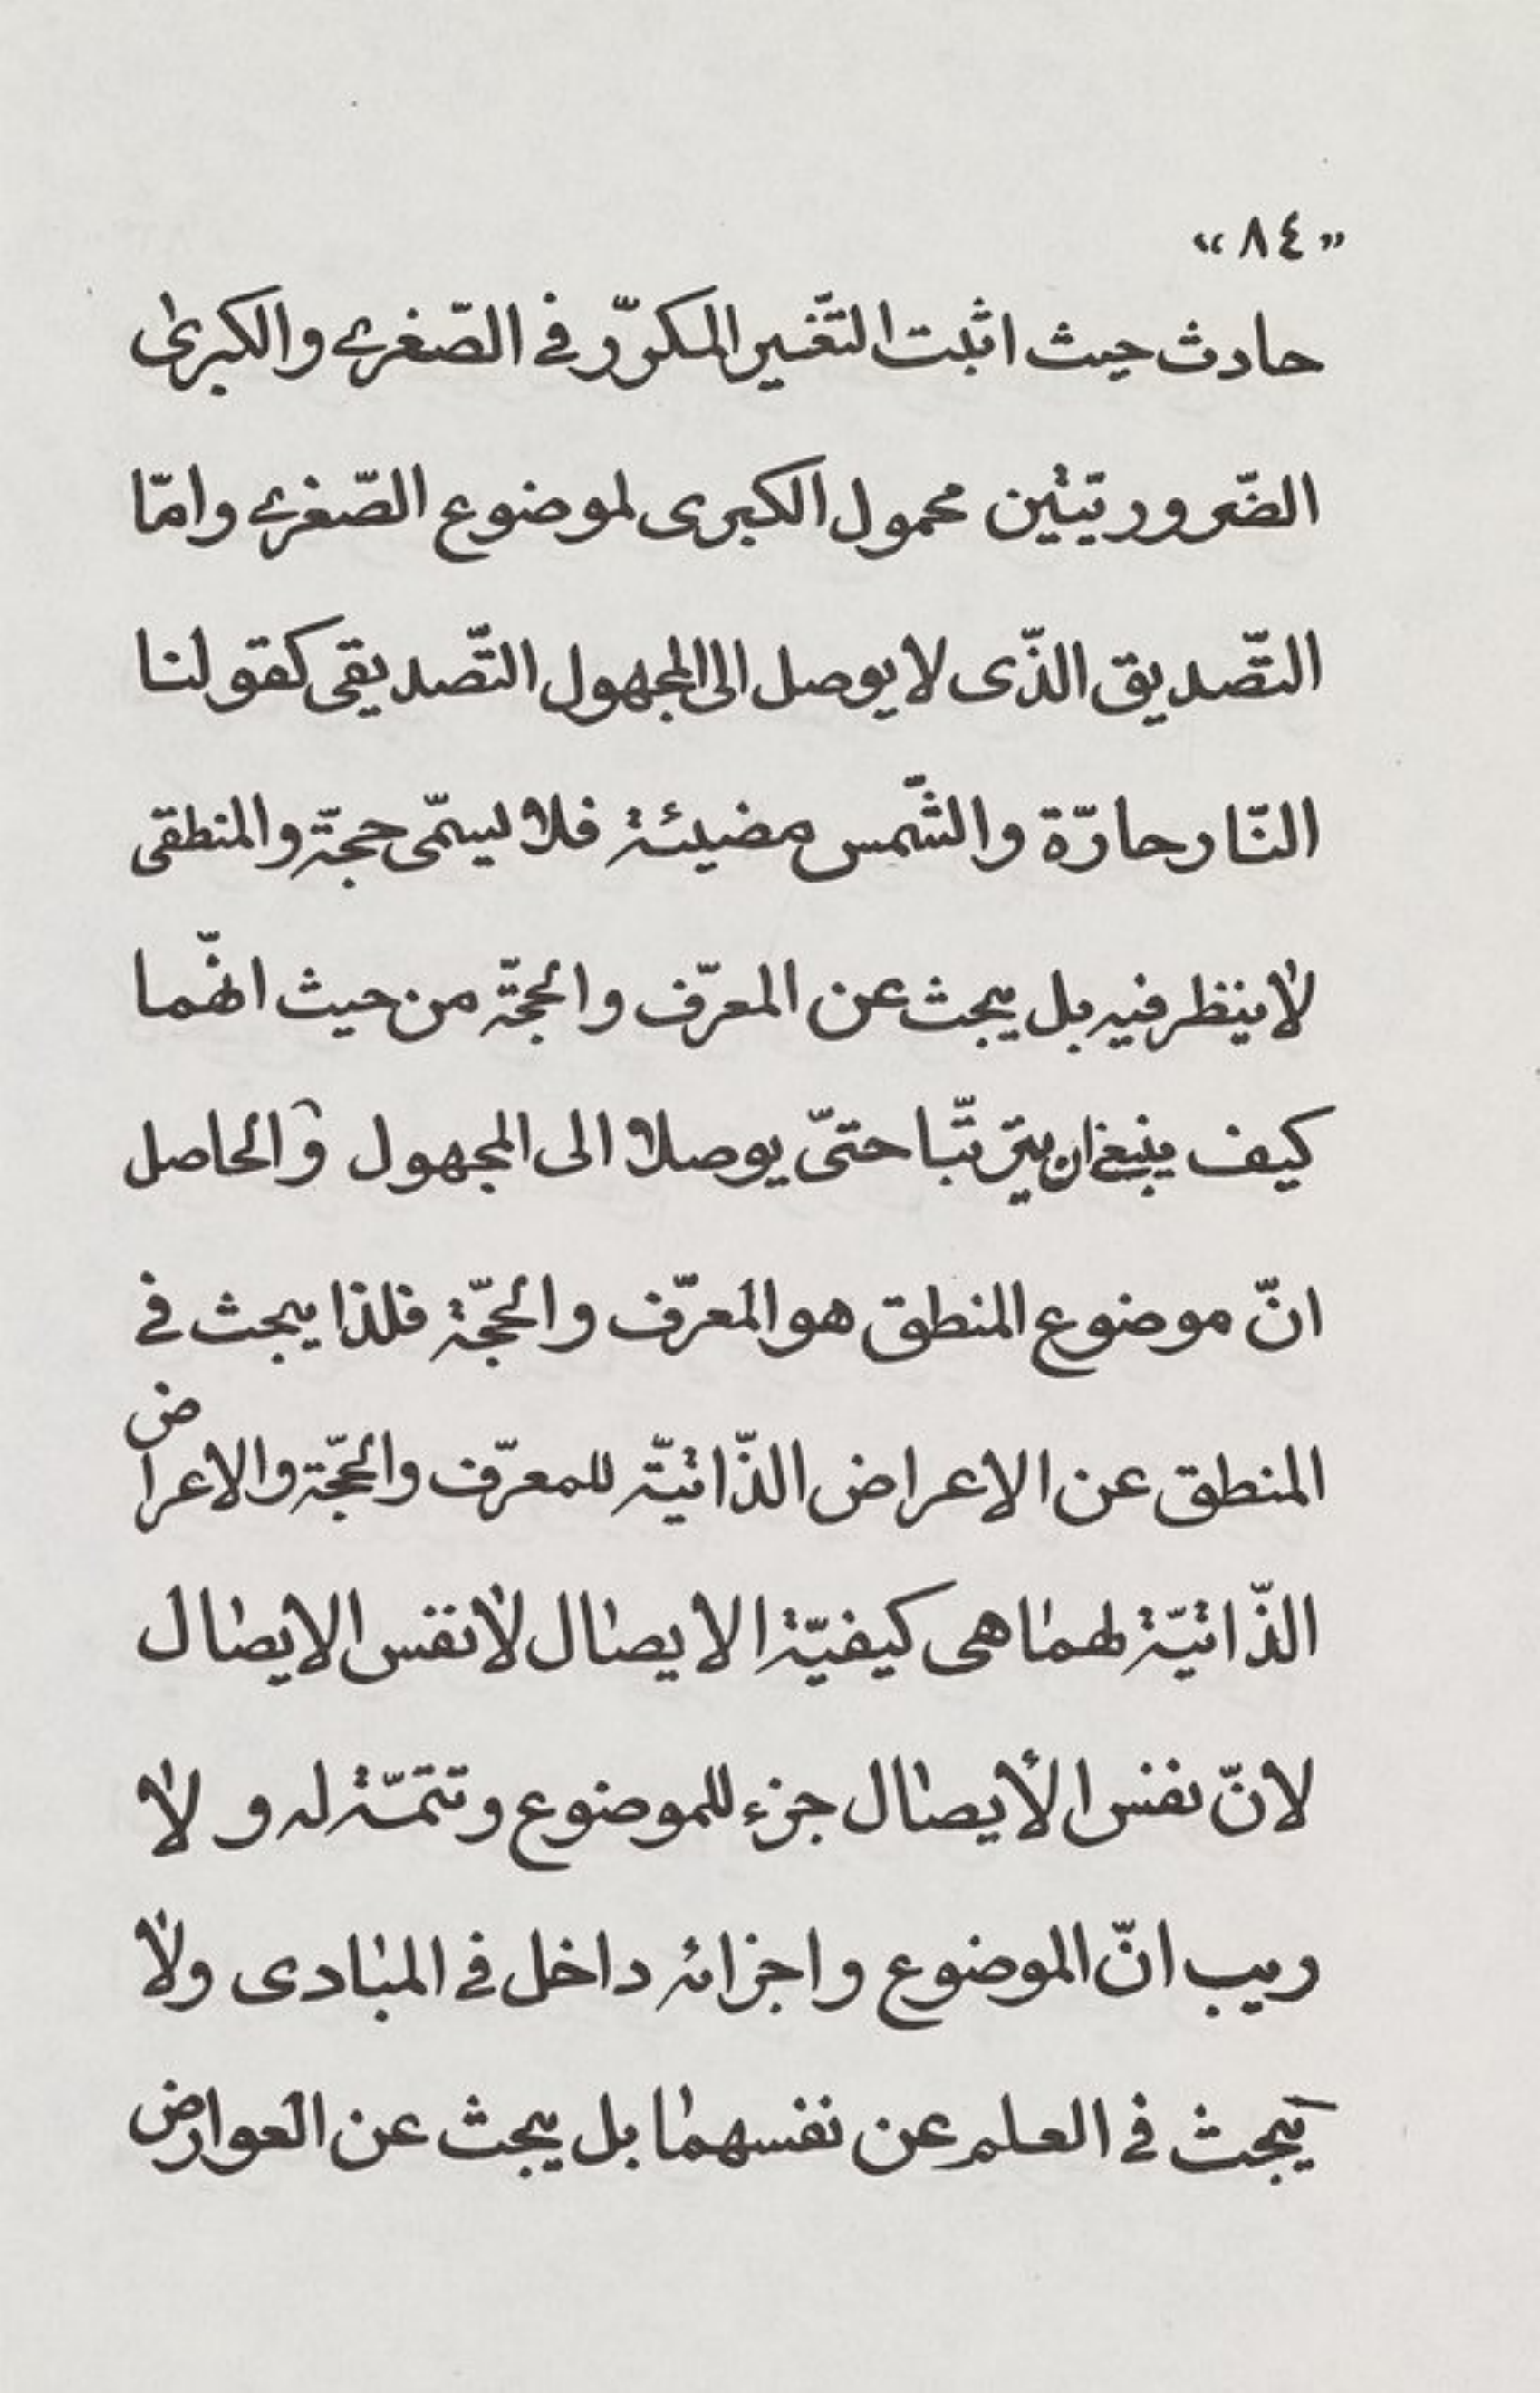 «٨٤»
حادث حيث اثبت التّغيير المكرّر في الصّغرى والكبرىٰ
الضّروريّتين محمول الكبرى لموضوع الصّغرى وامّا
التّصديق الذّى لا يوصل الى المجهول التّصديقى كقولنا
النّار حارّة والشّمس مضيئة فلا يسمّى حجّة والمنطقى
لاٰ ينظر فيه بل يبحث عن المعرّف والحجّة من حيث انّهما
كيف ينبغى ان يترتّبا حتىّ يوصلا الى المجهول والحاصل
انّ موضوع المنطق هو المعرّف والحجّة فلذا يبحث في
المنطق عن الاعراض الذّاتيّة للمعرّف والحجّة والاعراض
الذّاتيّة لهمٰا هى كيفيّة الايصٰال لاٰ نفس الايصٰال
لانّ نفس الأيصٰال جزء للموضوع وتتمّة له و لاٰ
ريب انّ الموضوع واجزائه داخل في المبٰادى ولاٰ
يبحث في العلم عن نفسهمٰا بل يبحث عن العوارض